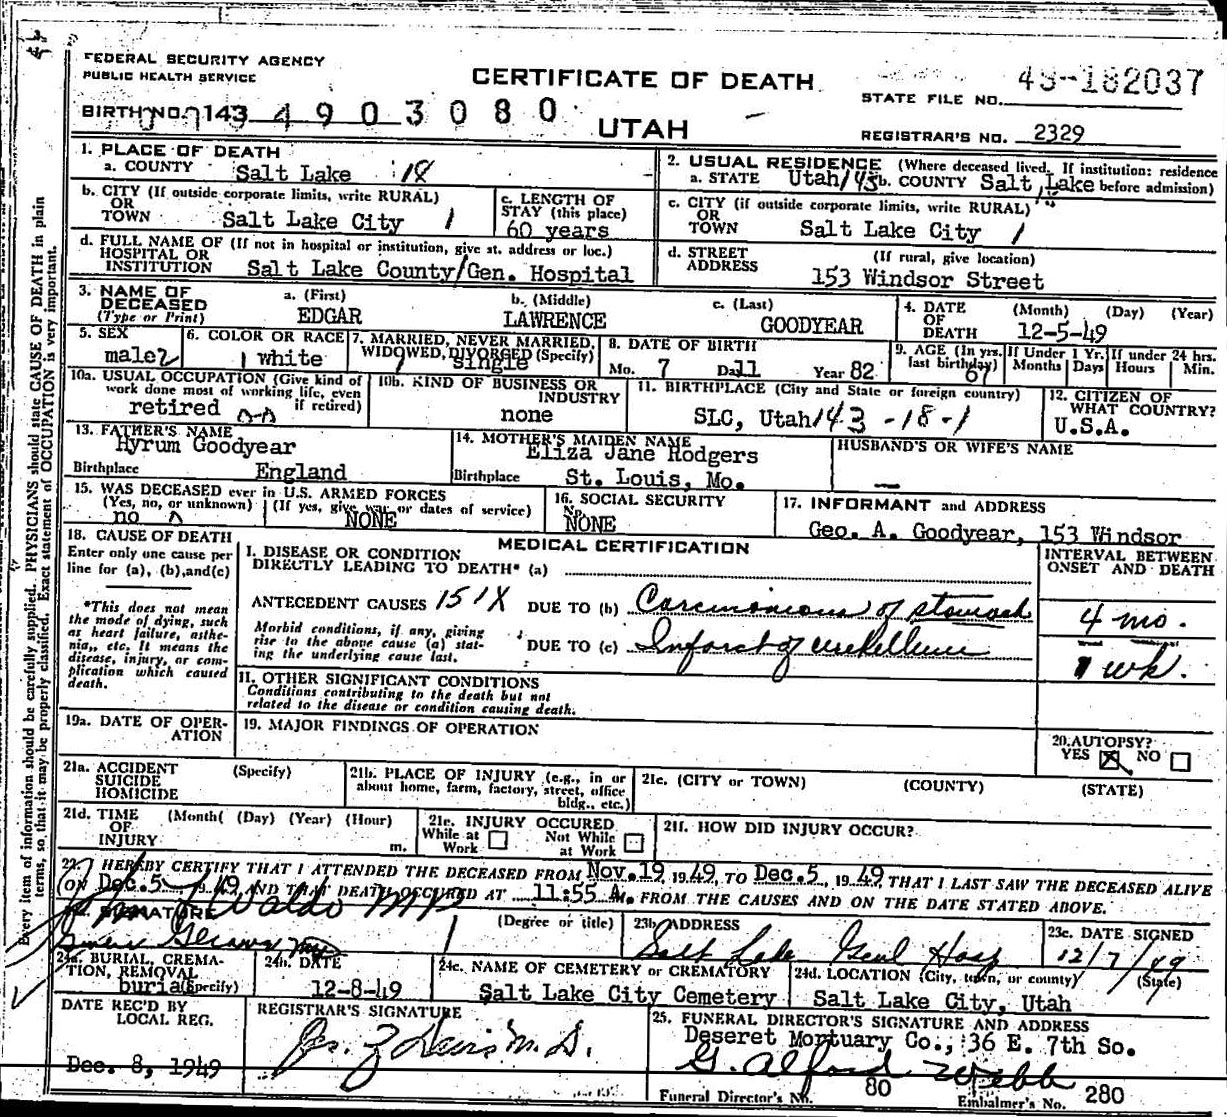 FEDERAL SECURITY AGENCY
PUBLIC HEALTH SERVICE
CERTIFICATE OF DEATH
49-182037
STATE FILE NO.
BIRTH NO. 143 4903080
UTAH
REGISTRAR'S NO. 2329
1. PLACE OF DEATH
a. COUNTY Salt Lake 18
2. USUAL RESIDENCE (Where deceased lived. If institution: residence before admission)
a. STATE Utah 143 b. COUNTY Salt Lake
b. CITY (If outside corporate limits, write RURAL)
OR
TOWN Salt Lake City 1
c. LENGTH OF
STAY (this place)
60 years
c. CITY (if outside corporate limits, write RURAL)
OR
TOWN Salt Lake City 1
d. FULL NAME OF (If not in hospital or institution, give st. address or loc.)
HOSPITAL OR
INSTITUTION Salt Lake County/Gen. Hospital
d. STREET (If rural, give location)
ADDRESS 153 Windsor Street
3. NAME OF
DECEASED
(Type or Print)
a. (First) EDGAR
b. (Middle) LAWRENCE
c. (Last) GOODYEAR
4. DATE (Month) (Day) (Year)
OF
DEATH 12-5-49
5. SEX
male 2
6. COLOR OR RACE
1 white
7. MARRIED, NEVER MARRIED,
WIDOWED, DIVORCED (Specify)
single
8. DATE OF BIRTH
Mo. 7 Da. 11 Year 82
9. AGE (In yrs.
last birthday) 67
If Under 1 Yr.
Months Days
If under 24 hrs.
Hours Min.
10a. USUAL OCCUPATION (Give kind of
work done most of working life, even
if retired)
retired
10b. KIND OF BUSINESS OR
INDUSTRY
none
11. BIRTHPLACE (City and State or foreign country)
SLC, Utah 143-18-1
12. CITIZEN OF
WHAT COUNTRY?
U.S.A.
13. FATHER'S NAME
Hyrum Goodyear
Birthplace England
14. MOTHER'S MAIDEN NAME
Eliza Jane Rodgers
Birthplace St. Louis, Mo.
HUSBAND'S OR WIFE'S NAME
—
15. WAS DECEASED ever in U.S. ARMED FORCES
(Yes, no, or unknown) (If yes, give war or dates of service)
no NONE
16. SOCIAL SECURITY
No.
NONE
17. INFORMANT and ADDRESS
Geo. A. Goodyear, 153 Windsor
18. CAUSE OF DEATH
Enter only one cause per
line for (a), (b), and (c)
*This does not mean
the mode of dying, such
as heart failure, asthe-
nia,, etc. It means the
disease, injury, or com-
plication which caused
death.
MEDICAL CERTIFICATION
I. DISEASE OR CONDITION
DIRECTLY LEADING TO DEATH* (a)
ANTECEDENT CAUSES 151X DUE TO (b) Carcinomious of stomach
Morbid conditions, if any, giving
rise to the above cause (a) stat-
ing the underlying cause last.
DUE TO (c) Infarct of
INTERVAL BETWEEN
ONSET AND DEATH
4 mo.
1 wk.
II. OTHER SIGNIFICANT CONDITIONS
Conditions contributing to the death but not
related to the disease or condition causing death.
19a. DATE OF OPER-
ATION
19. MAJOR FINDINGS OF OPERATION
20. AUTOPSY?
YES NO
21a. ACCIDENT (Specify)
SUICIDE
HOMICIDE
21b. PLACE OF INJURY (e.g., in or
about home, farm, factory, street, office
bldg., etc.)
21c. (CITY or TOWN) (COUNTY) (STATE)
21d. TIME (Month( (Day) (Year) (Hour)
OF
INJURY m.
21e. INJURY OCCURED
While at Work
Not While at Work
21f. HOW DID INJURY OCCUR?
22. I HEREBY CERTIFY THAT I ATTENDED THE DECEASED FROM Nov. 19, 1949, TO Dec. 5, 1949 THAT I LAST SAW THE DECEASED ALIVE
ON Dec. 5 1949, AND THAT DEATH OCCURED AT 11:55 A.M. FROM THE CAUSES AND ON THE DATE STATED ABOVE.
SIGNATURE
Waldo MD
(Degree or title)
23b. ADDRESS
Salt Lake Genl Hosp
23c. DATE SIGNED
12/7/49
24a. BURIAL, CREMA-
TION, REMOVAL
(Specify) burial
24b. DATE
12-8-49
24c. NAME OF CEMETERY or CREMATORY
Salt Lake City Cemetery
24d. LOCATION (City, town, or county) (State)
Salt Lake City, Utah
DATE REC'D BY
LOCAL REG.
Dec. 8, 1949
REGISTRAR'S SIGNATURE
M. D.
25. FUNERAL DIRECTOR'S SIGNATURE AND ADDRESS
Deseret Mortuary Co., 36 E. 7th So.
G. Alford Webb
Funeral Director's No. 80
Embalmer's No. 280
Every item of information should be carefully supplied. PHYSICIANS should state CAUSE OF DEATH in plain
terms, so that it may be properly classified. Exact statement of OCCUPATION is very important.